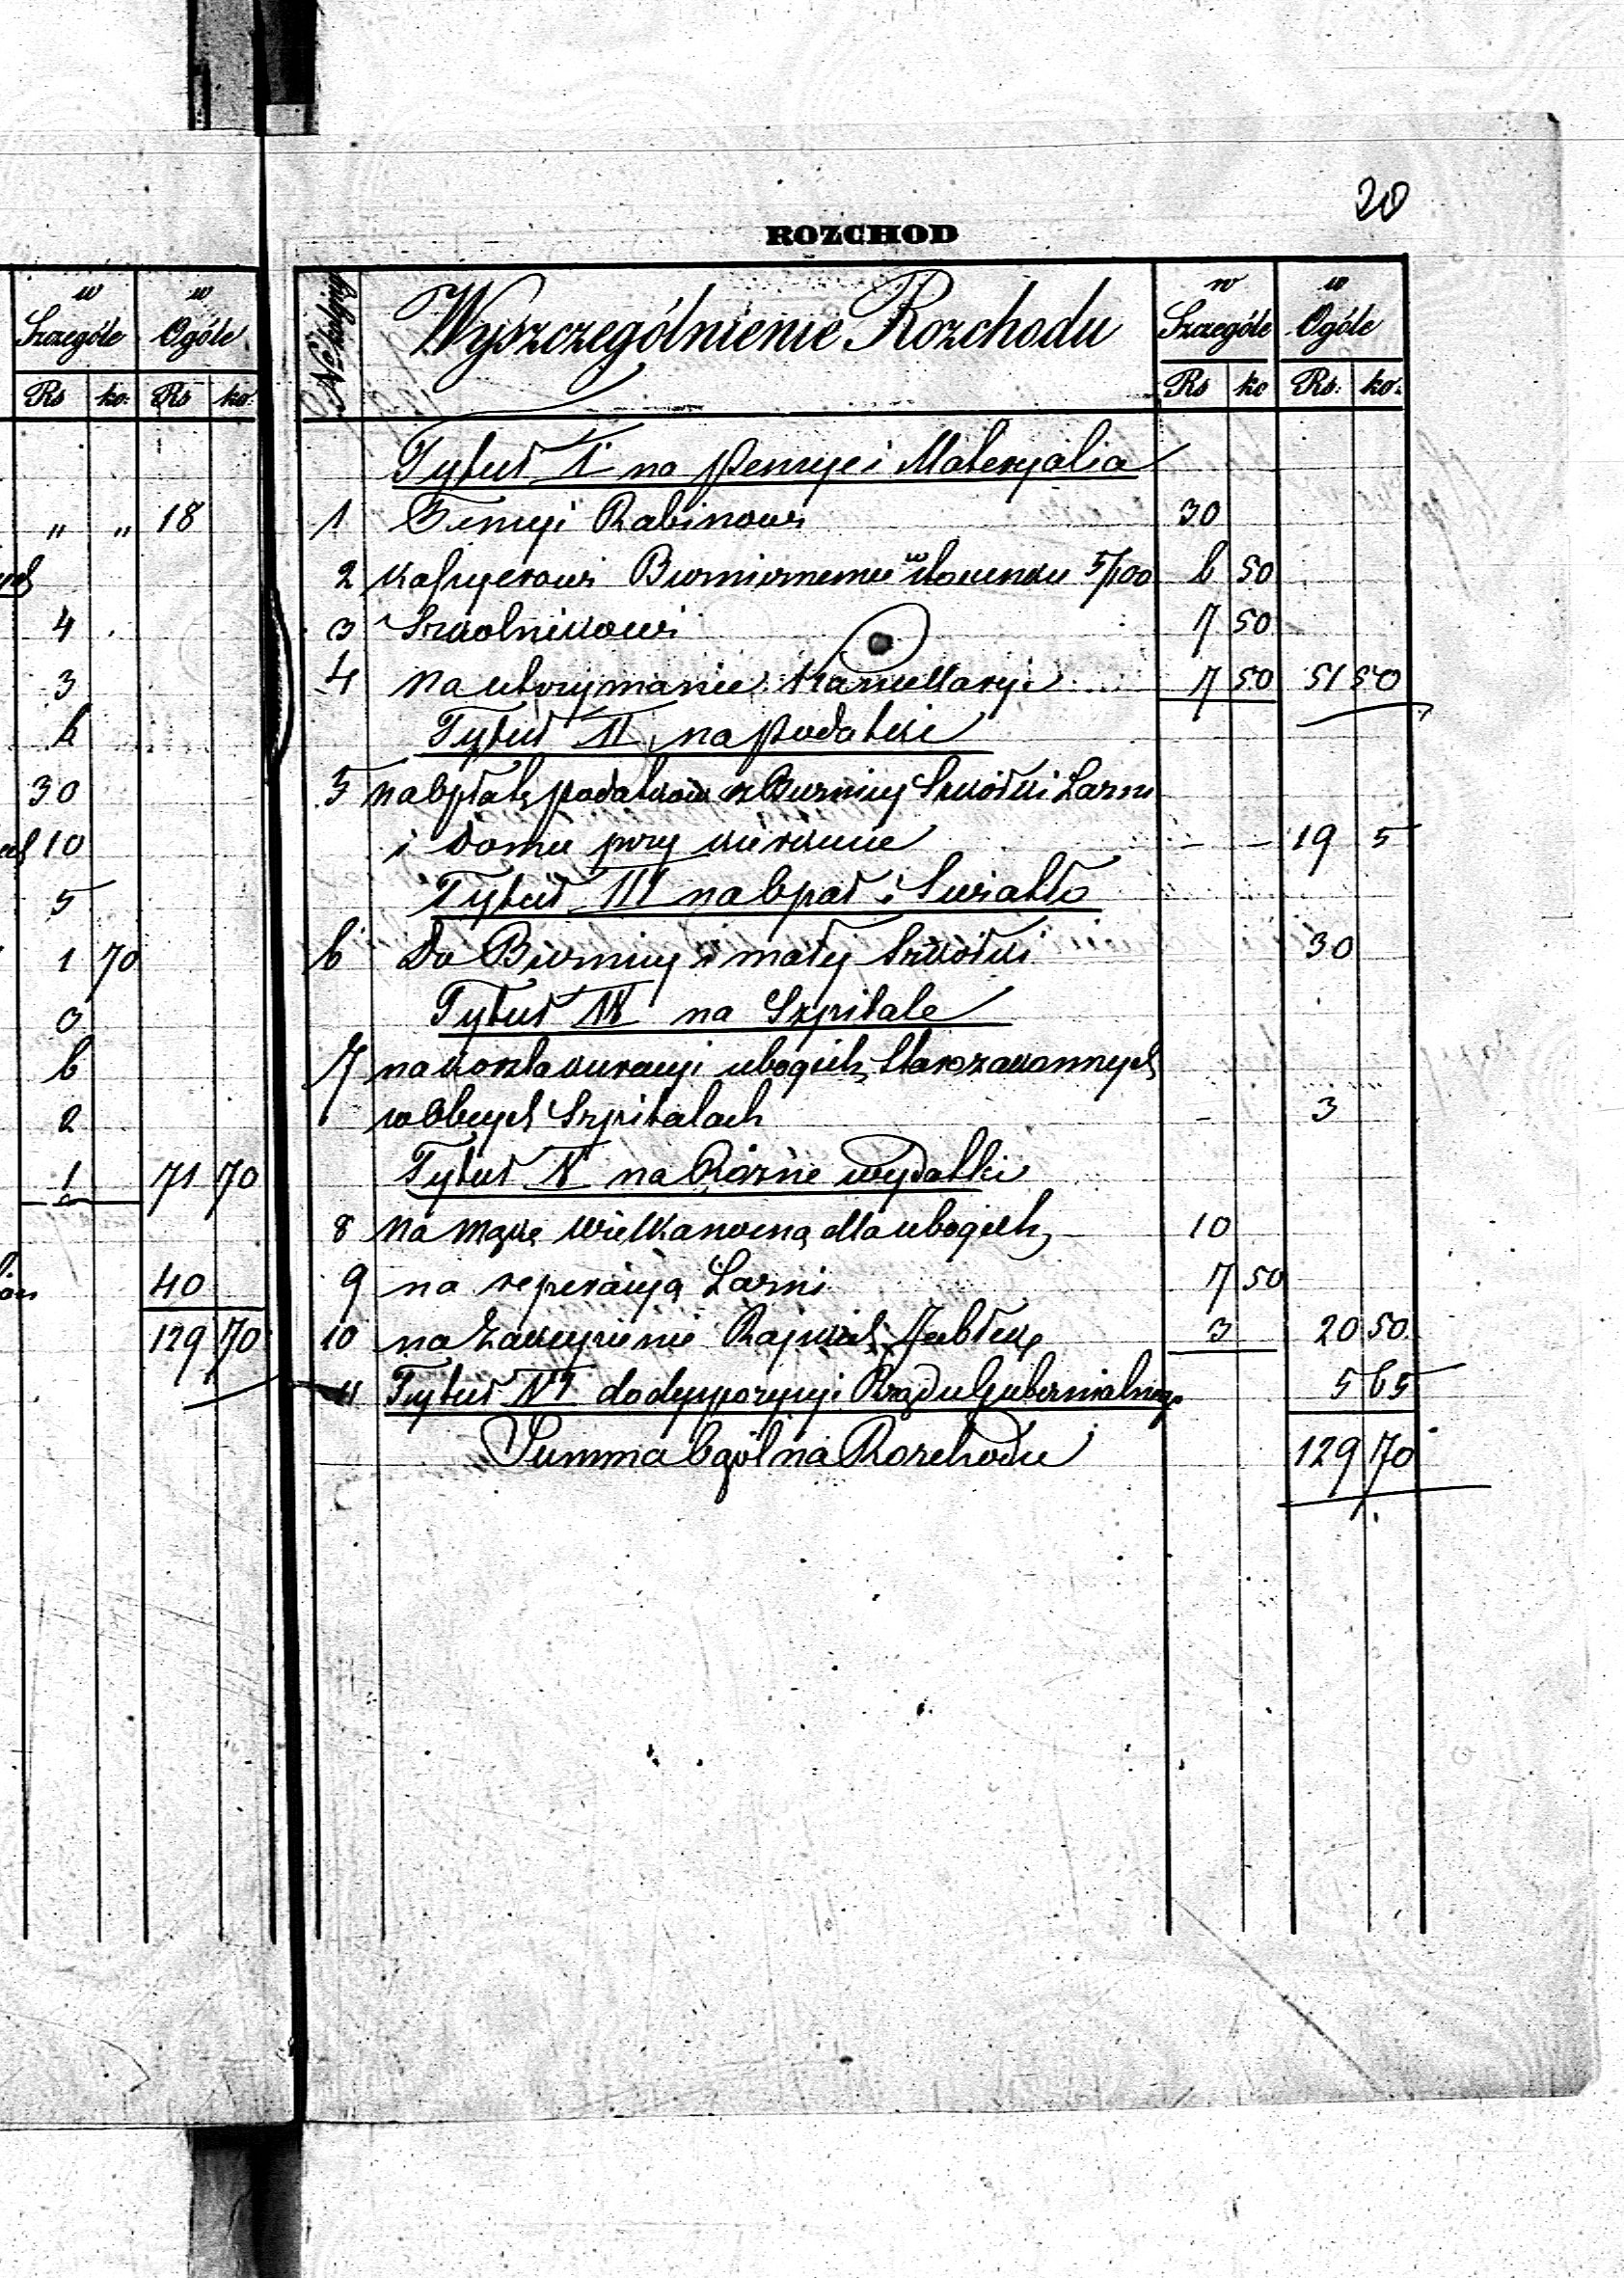 20
ROZCHOD
w Szczególe w Ogóle
Rs ko. Rs ko.
" " 18
4
3
6
30
10
5
1 70
0
6
2
1 71 70
40
129 70
No kolejny Wyszczególnienie Rozchodu w Szczególe w Ogóle
Rs ko Rs. ko.
Tytuł I na Pensye i Materyalia
1 Pensyi Rabinowi 30
2 Kassyerowi Bużnicznemu w stosunku 5/100 6 50
3 Szkolnikowi 7 50
4 Na utrzymanie Kancellaryi 7 50 51 50
Tytuł II na Podatki
5 na Opłatę podatków z Bużnicy Szkółki Łazni
i domu przy kirkucie - - 19 5
Tytuł III na Opał i Swiatło
6 Do Bużnicy i małej Szkółki 30
Tytuł IV na Szpitale
7 na koszta kuracyi ubogich Starozakonnych
w Obcych Szpitalach - 3
Tytuł V na Różne wydatki
8 na mąkę wielkanocną dla ubogich 10
9 na reperacyą Łazni 7 50
10 na Zakupienie Rajskich Jabłek 3 20 50
11 Tytuł VI do dyspozycyi Rządu Gubernialnego 5 65
Summa Ogólna Rozchodu 129 70